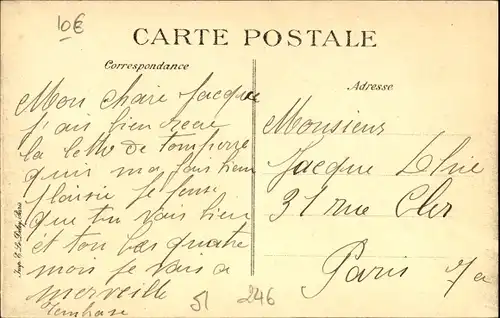 10€
CARTE POSTALE
Correspondance
Adresse
Mon chaire Jacque
j'ais bien recu
la lettre de ton pierre
quis ma fais bien
plaisir je pense
que tu vais bien
et ton bas quatre
mois je vais a
merveille
Monsieur
Jacque
31 rue Cler
Paris 7e
51 246